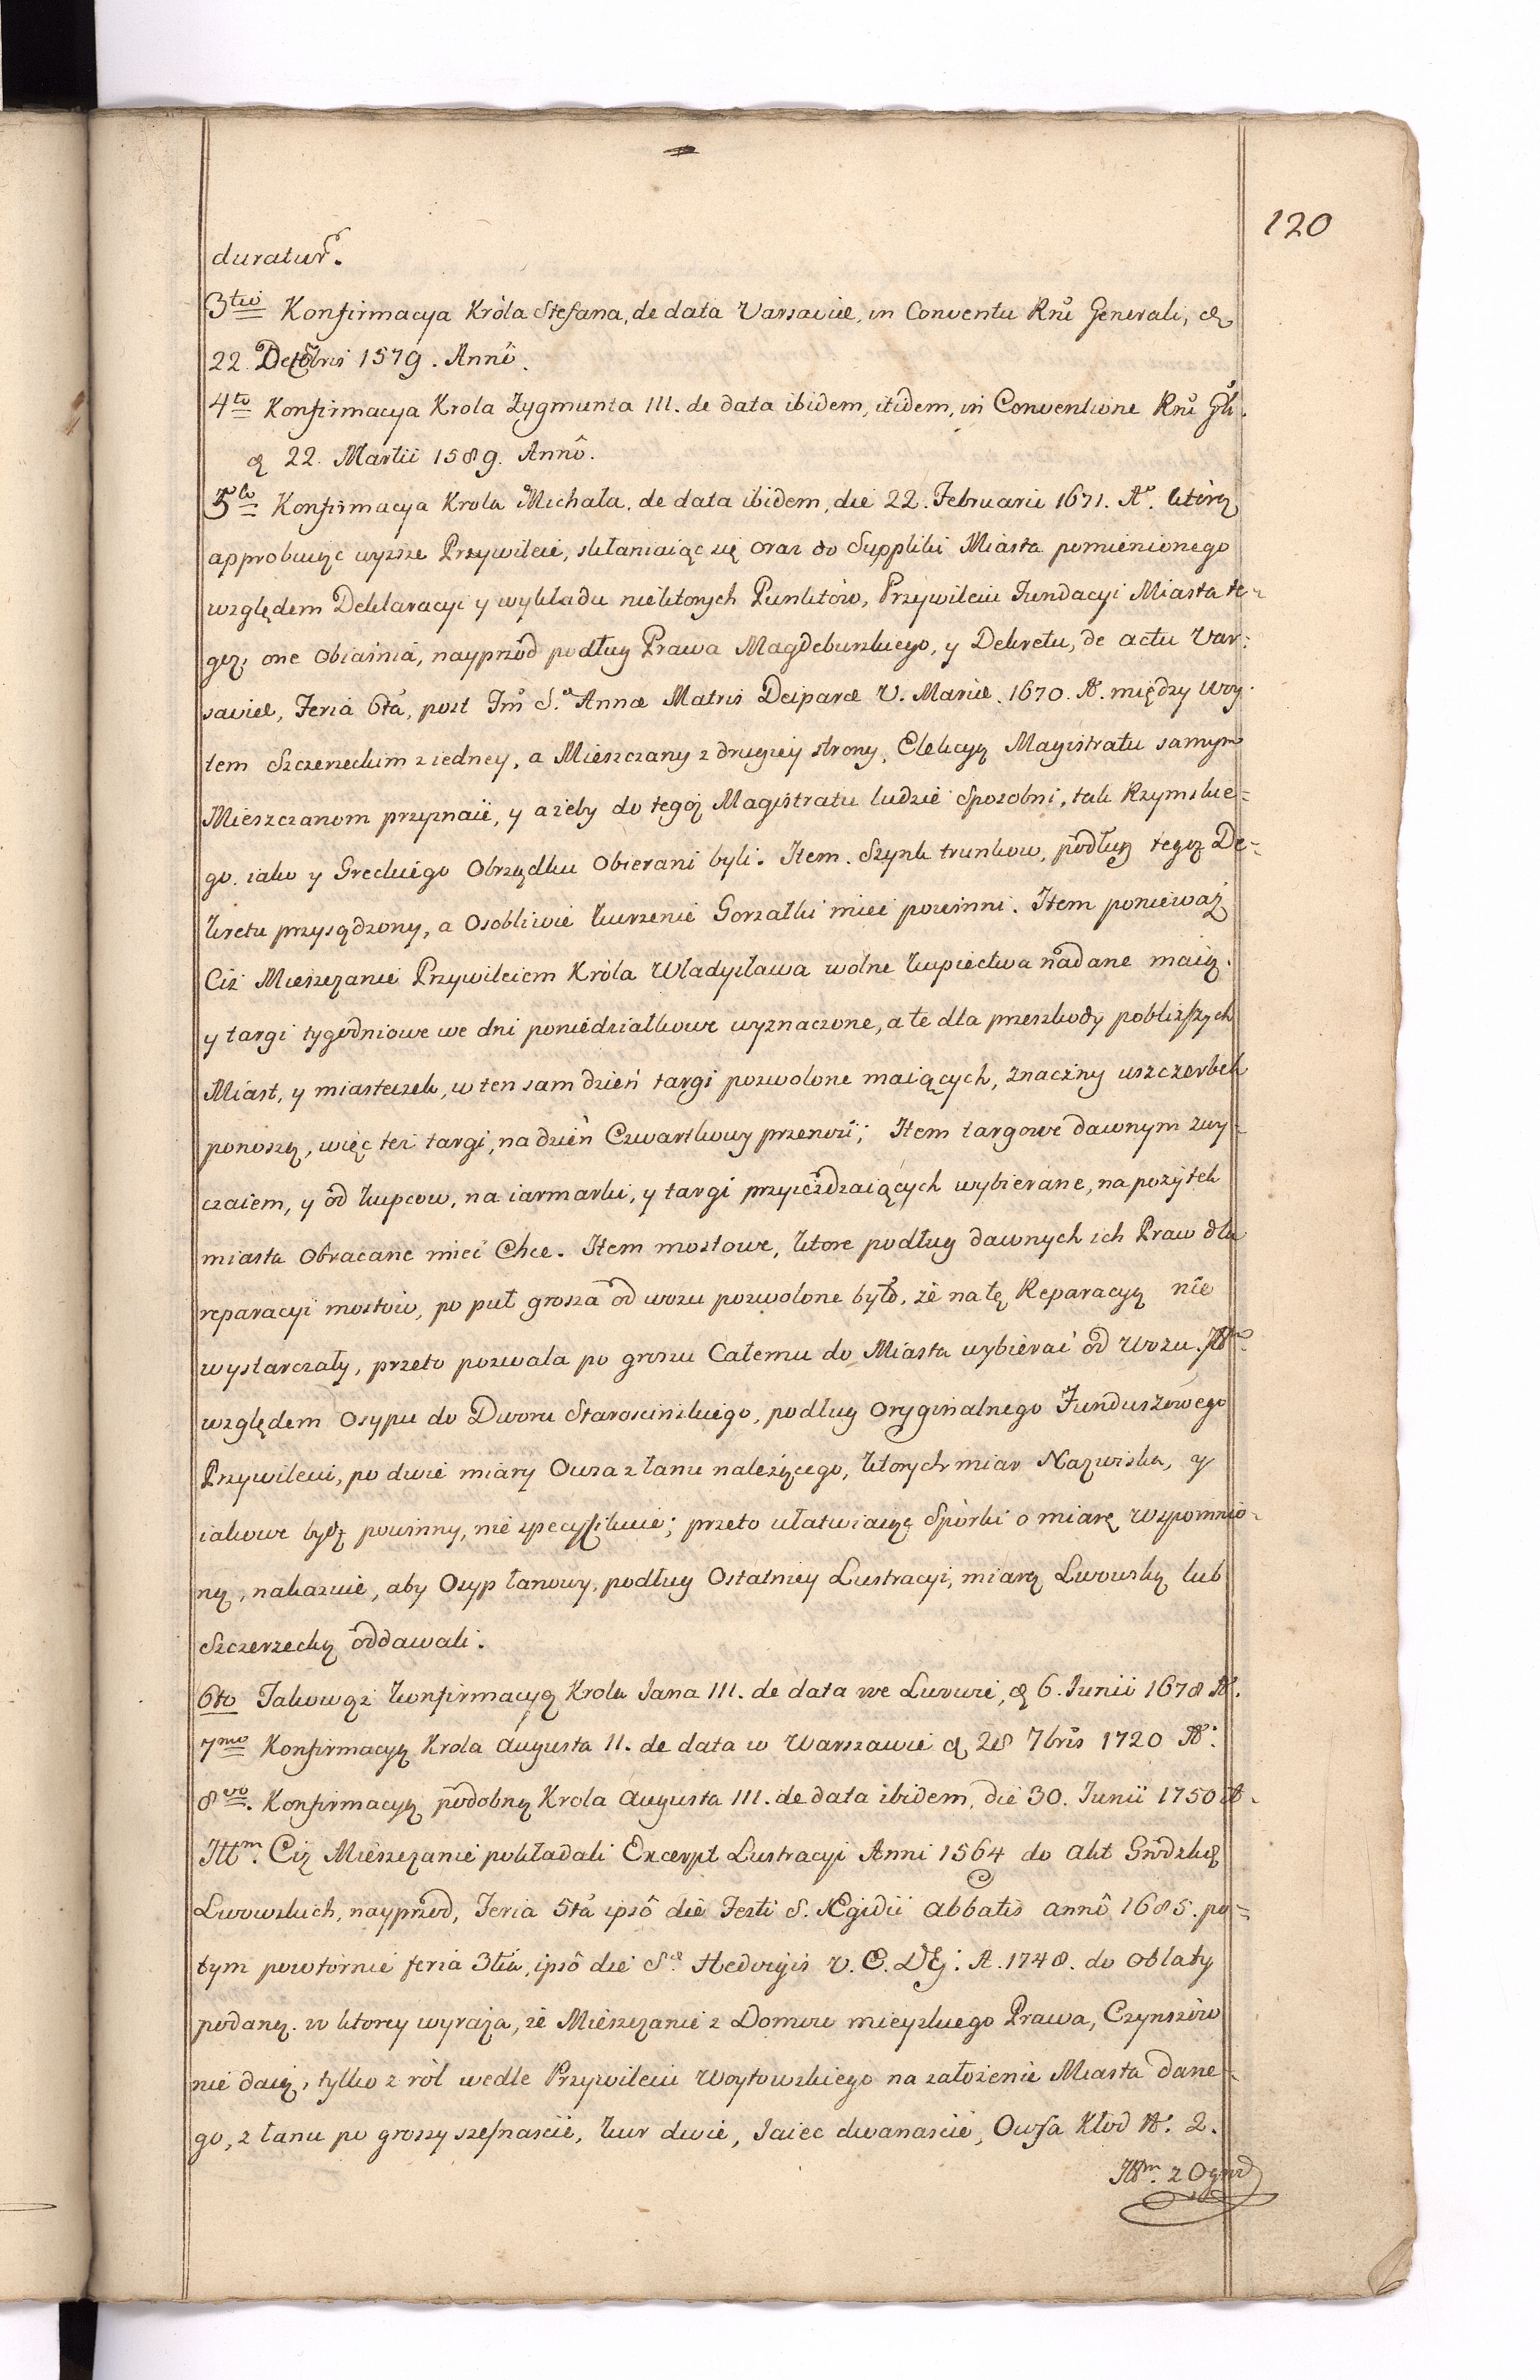 120
duratur.
3tio Konfirmacya Króla Stefana, de data Varsaviæ, in Conventu Rnû Generali,
22. Decembris 1579. Annô.
4to Konfirmacya Krola Zygmunta III. de data ibidem, itidem, in Conventione Rnû Gli.
22. Martii 1589. Annô.
5to Konfirmacya Krola Michała, de data ibidem, die 22. Februarii 1671. Ao. którą
approbuiąc wyższe Przywileie, skłaniaiąc się oraz do Suppliki Miasta pomienionego
względem Deklaracyi y wykładu niektorych Punktów, Przywileiu Fundacyi Miasta te-
goż, one obiaśnia, nayprzód podług Prawa Magdeburskiego, y Dekretu, de actu Var:
saviæ, Feria 6tâ, post Fm S.æ Annæ Matris Deiparæ V. Mariæ. 1670. A. między Woy-
tem Szczerzeckim z iedney, a Mieszczany z drugiey strony, Elekcyą Magistratu samym
Mieszczanom przyznaie, y ażeby do tegoż Magistratu ludzie sposobni, tak Rzymskie=
go. iako y Greckiego Obrządku Obierani byli. Item. Szynk trunkow, podług tegoż De=
kretu przysądzony, a Osobliwie kurzenie Gorzałki mieć powinni. Item ponieważ
Ciż Mieszczanie Przywileiem Króla Władysława wolne kupiectwa nadane maią.
y targi tygodniowe we dni poniedziałkowe wyznaczone, a te dla przeszkody pobliższych
Miast, y miasteczek, w ten sam dzień targi pozwolone maiących, znaczny uszczerbek
ponoszą, więc też targi, na dzień Czwartkowy przenosi; Item targowe dawnym zwy-
czaiem, y od kupcow, na iarmarki, y targi przyieżdzaiących wybierane, na pożytek
miasta Obracane mieć Chce. Item mostowe, ktore podług dawnych ich Praw dla
reparacyi mostów, po puł grosza od wozu pozwolone było, że na tę Reparacyą nie
wystarczały, przeto pozwala po groszu Całemu do Miasta wybierać od Wozu. Ittm
względem Osypu do Dworu Starościnskiego, podług Oryginalnego Funduszowego
Przywileiu, po dwie miary Owsa z łanu należącego, ktorych miar Nazwiska, y
iakowe bydź powinny, nie specyffikuie; przeto ułatwiaiąc Spórki o miarę wspomnio-
ną, nakazuie, aby Osyp łanowy, podług Ostatniey Lustracyi, miarą Lwowską lub
Szczerzecką oddawali.
6to Jakowąż konfirmacyą Krola Jana III. de data we Lwowie, 6. Junii 1678 A.
7mo Konfirmacyą Krola Augusta II. de data w Warszawie 28 7bris 1720 A.
8vo. Konfirmacyą podobną Krola Augusta III. de data ibidem, die 30. Junii 1750 A.
Ittm. Ciż Mieszczanie pokładali Excerpt Lustracyi Anni 1564 do Akt Grodzkich
Lwowskich, nayprzod, Feria 5tâ ipsô die Festi S. Ægidii Abbatis annô 1685. po=
tym powtórnie feria 3tiâ, ipsô die S.æ Hedvigis V. A. 1748. do Oblaty
podaną. w ktorey wyraża, że Mieszczanie z Domow mieyskiego Prawa, Czynszów
nie daią, tylko z ról wedle Przywileiu Woytowskiego na założenie Miasta dane-
go, z łanu po groszy szesnaście, kur dwie, Jaiec dwanaście, Owsa Kłod N. 2.
Ittm. z Ogrod